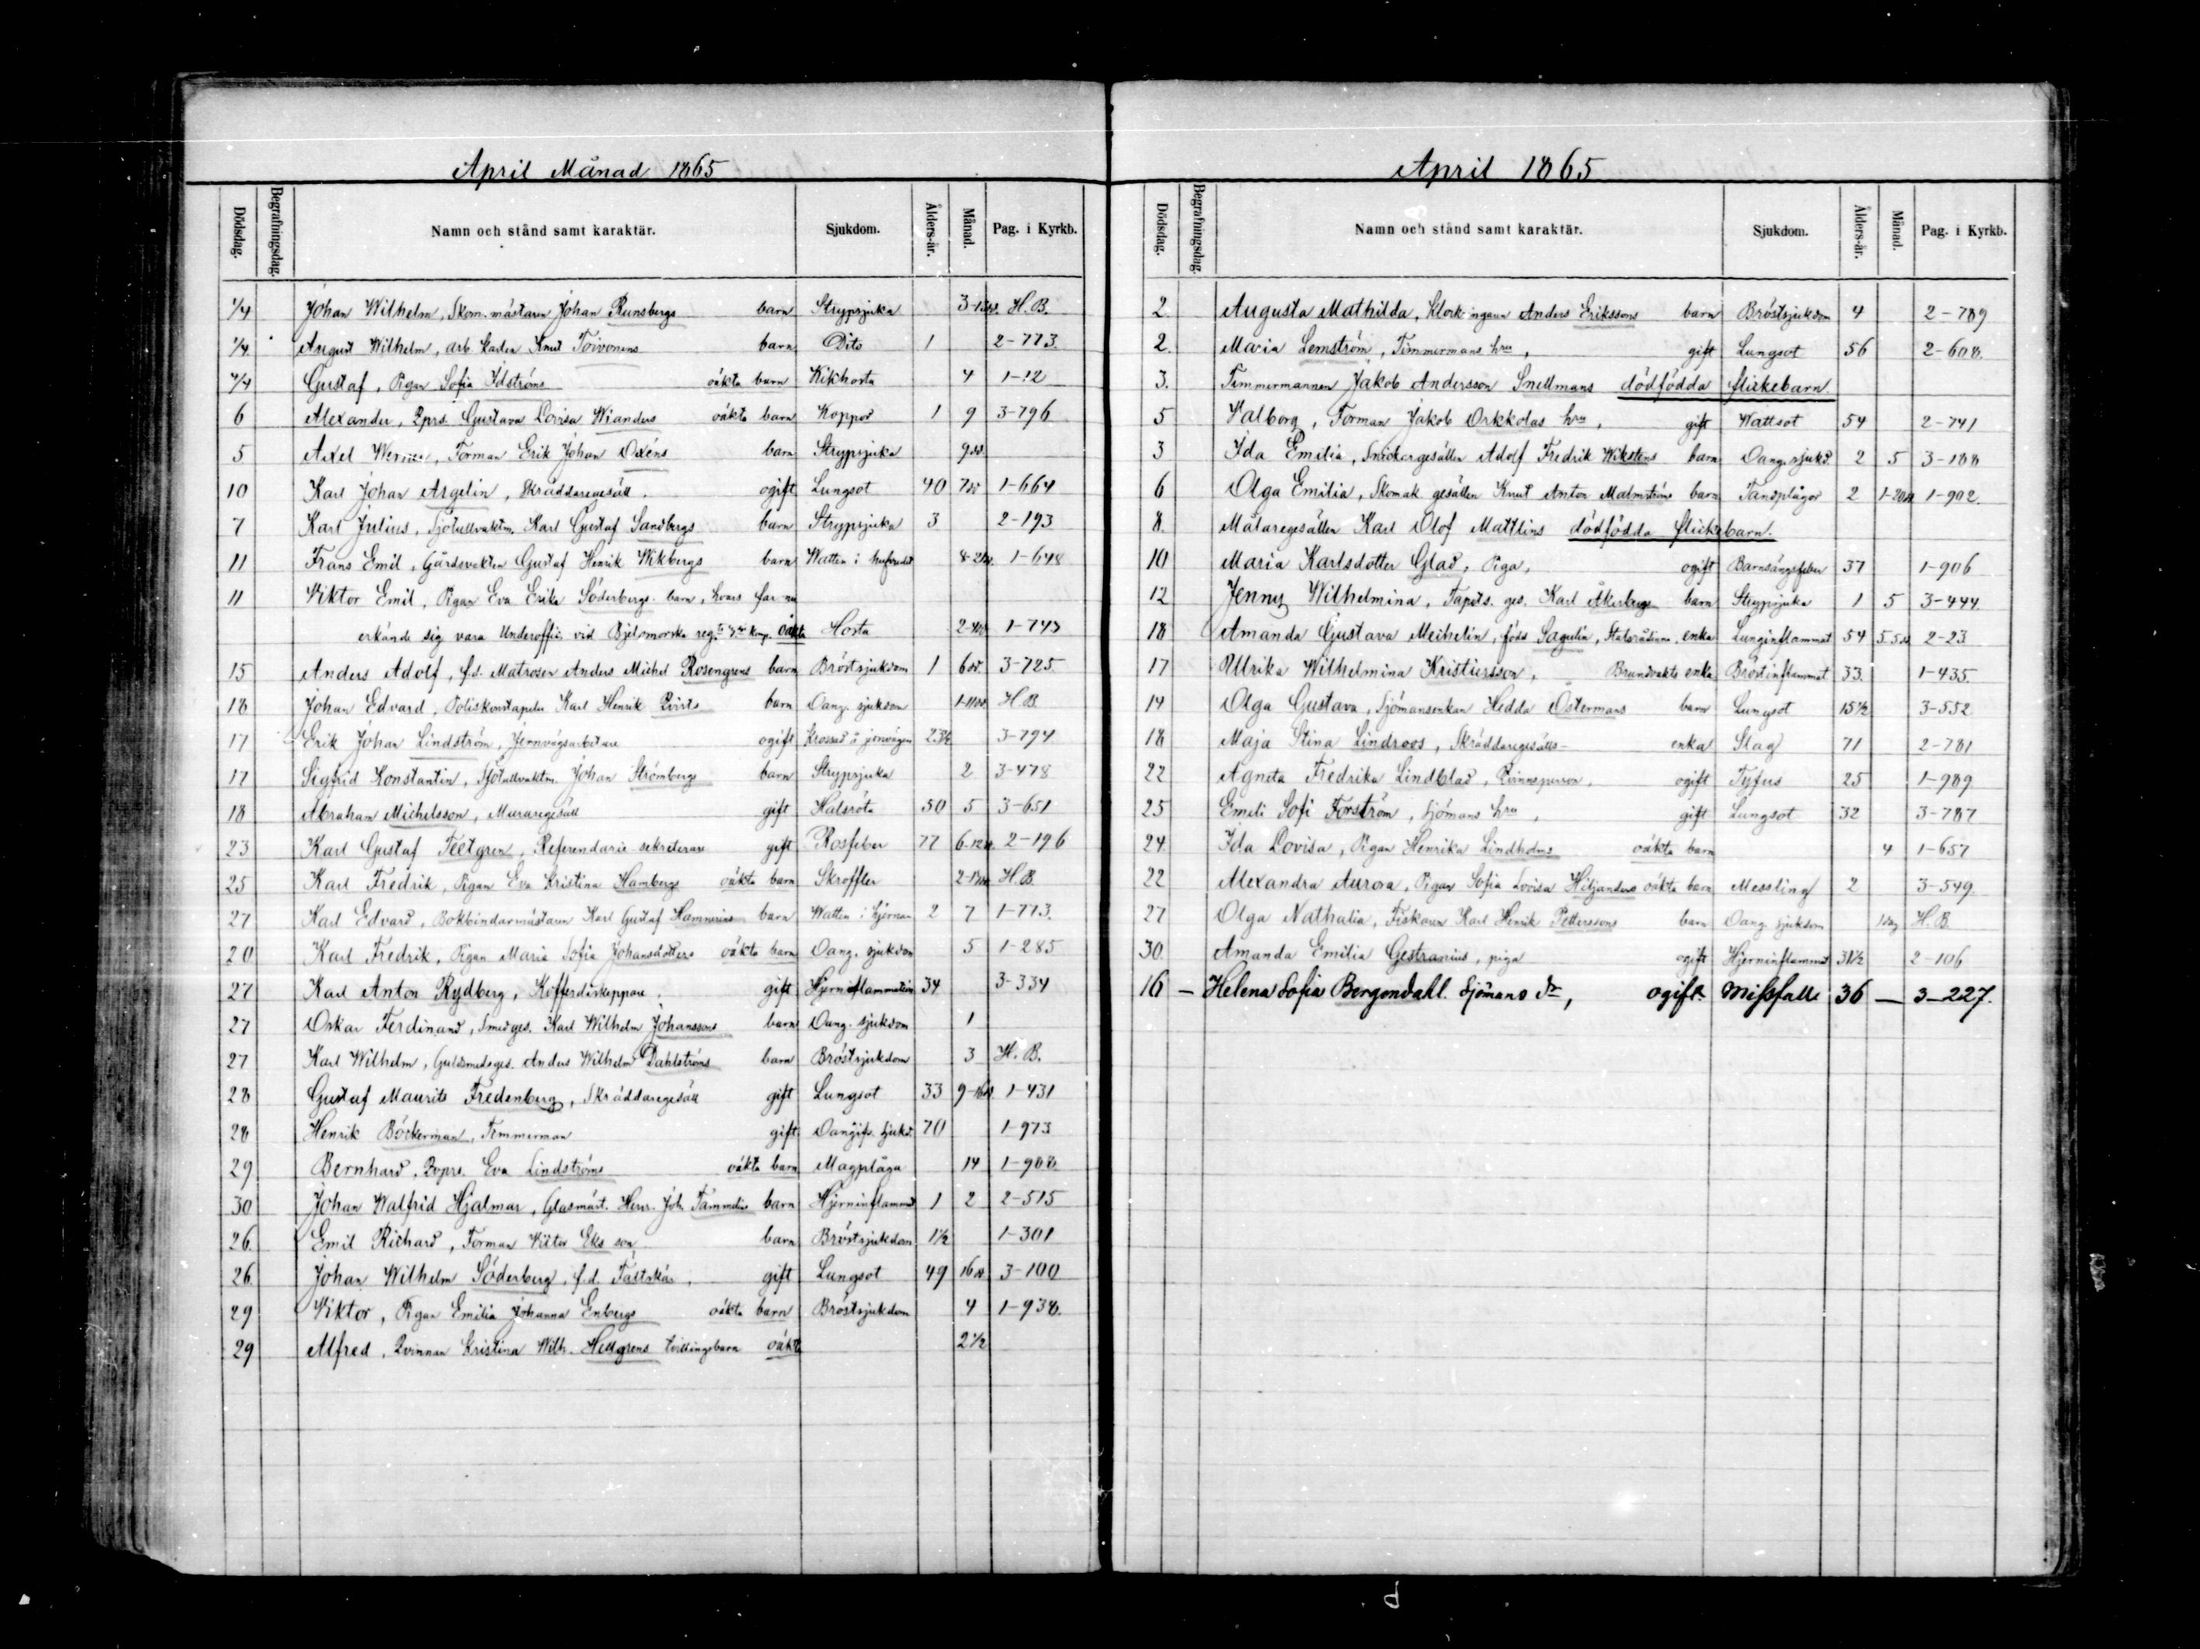 April Månad 1865
Dödsdag. Begrafningsdag. Namn och stånd samt karaktär. Sjukdom. Ålders-år. Månad. Pag. i Kyrkb.
1/4 Johan Wilhelm, Skom. mästaren Johan Runsbergs barn Strypsjuka 3- H.B.
1/4 August Wilhelm, arb. karlen Knut Toivonens barn Dito 1 2-773.
4/4 Gustaf, Pigan Sofia Idströms oäkta barn Kikhosta 4 1-12
6 Alexander, Qprs. Gustava Lovisa Wianders oäkta barn Koppor 1 9 3-796
5 Axel Werner, Forman Erik Johan Oxéns barn Strypsjuka
10 Karl Johan Argelin, Skräddaregesäll. ogift Lungsot 40 1-664
7 Karl Julius, Sjötullvaktm. Karl Gustaf Sandbergs barn Strypsjuka 3 2-193
11 Frans Emil, Gårdsvakten Gustaf Henrik Wikbergs barn Watten i hufvudet 1-648
11 Viktor Emil, Pigan Eva Erika Söderbergs barn, hvars far
erkände sig vara Underoffic. vid Bjelomorska reg:ts komp. oäkta Hosta 1-743
15 Anders Adolf, f.d. Matrosen Anders Michel Rosengrens barn Bröstsjukdom 1 3-725
18 Johan Edvard, Poliskonstapeln Karl Henrik Qvists barn Oang. sjukdom H.B.
17 Erik Johan Lindström, Jernvägsarbetare ogift Krossad å jernvägen 23½ 3-794
17 Sigfrid Konstantin, Sjötullvaktm. Johan Strömbergs barn Strypsjuka 2 3-478
18 Abraham Michelsson, Muraregesäll gift Halsröta 50 5 3-651
23 Karl Gustaf Teetgren, Referendarie-sekreterare gift Rosfeber 77 2-196
25 Karl Fredrik, Pigan Eva Kristina Hambergs oäkta barn Skroffler H.B.
27 Karl Edvard, Bokbindarmästaren Karl Gustaf Hamnerins barn Watten i hjernan 2 7 1-773.
20 Karl Fredrik, Pigan Maria Sofia Johansdotters oäkta barn Oang. sjukdom 5 1-285
27 Karl Anton Rydberg, Kofferdiskeppare, gift Hjerninflammation 34 3-334
27 Oskar Ferdinand, Smedges. Karl Wilhelm Johanssons barn Oang. sjukdom 1
27 Karl Wilhelm, Guldsmedsges. Anders Wilhelm Dahlströms barn Bröstsjukdom 3 H.B.
28 Gustaf Maurits Fredenberg, Skräddaregesäll gift Lungsot 33 1-431
28 Henrik Böckerman, Timmerman gift Oangifv. sjukd. 70 1-973
29 Bernhard, Qvprs. Eva Lindströms oäkta barn Magplåga 14 1-908
30 Johan Walfrid Hjalmar, Glasmäst. Henr. Joh. Tammelins barn Hjerninflammat 1 2 2-515
26 Emil Richard, Forman Viktor Eks son barn Bröstsjukdom 1½ 1-301
26 Johan Wilhelm Söderberg, f.d. gift Lungsot 49 3-100
29 Viktor, Pigan Emilia Johanna Enbergs oäkta barn Bröstsjukdom 4 1-938.
29 Alfred, Qvinnan Kristina Wilh. Hellgrens tvillingebarn oäkta 2½
April 1865
Dödsdag. Begrafningsdag. Namn och stånd samt karaktär. Sjukdom. Ålders-år. Månad. Pag. i Kyrkb.
2. Augusta Mathilda, Anders Erikssons barn Bröstsjukdom 4 2-789
2. Maria Lemström, Timmermans hru, gift Lungsot 56 2-608.
3. Timmermannen Jakob Andersson Snellmans dödfödda flickebarn.
5 Valborg, Forman Jakob Orkkolas hru, gift Wattsot 54 2-741
3 Ida Emilia, Snickargesällen Adolf Fredrik Wikstens barn Oang. sjukd. 2 5 3-188
6 Olga Emilia, Skomak. gesällen Knut Anton Malmströms barn Tandplågor 2 1-902.
8. Målaregesällen Karl Olof Mattlins dödfödda flickebarn.
10 Maria Karlsdotter Glad, Piga, ogift Barnsängsfeber 37 1-906
12 Jenny Wilhelmina, Tapets. ges. Karl Åkerbergs barn Strypsjuka 1 5 3-444.
18 Amanda Gustava Meihelin, född Sagulin, Statsrådinna, enka Lunginflammat 54 2-23
17 Ulrika Wilhelmina Kristiersson, Brandvakts enka Bröstinflammat 33. 1-435
14 Olga Gustava, Sjömansenkan Hedda Östermans barn Lungsot 15½ 3-552
18 Maja Stina Lindroos, Skräddaregesälls- enka Slag 71 2-781
22 Agneta Fredrika Lindblad, Qvinnsperson, ogift Tyfus 25 1-989
25 Emeli Sofi Forström, Sjömans hru, gift Lungsot 32 3-787
24. Ida Lovisa, Pigan Henrika Lindholms oäkta barn 4 1-657
22 Alexandra Aurora, Pigan Sofia Lovisa Hiljanders oäkta barn Messling 2 3-549.
27 Olga Nathalia, Fiskaren Karl Henrik Petterssons barn Oang. sjukdom 1 dag H.B.
30. Amanda Emilia Gestranius, piga ogift Hjerninflammat 31½ 2-106
16 — Helena Sofia Bergendahl. Sjömans dr, ogift. Missfalle 36 — 3-227.